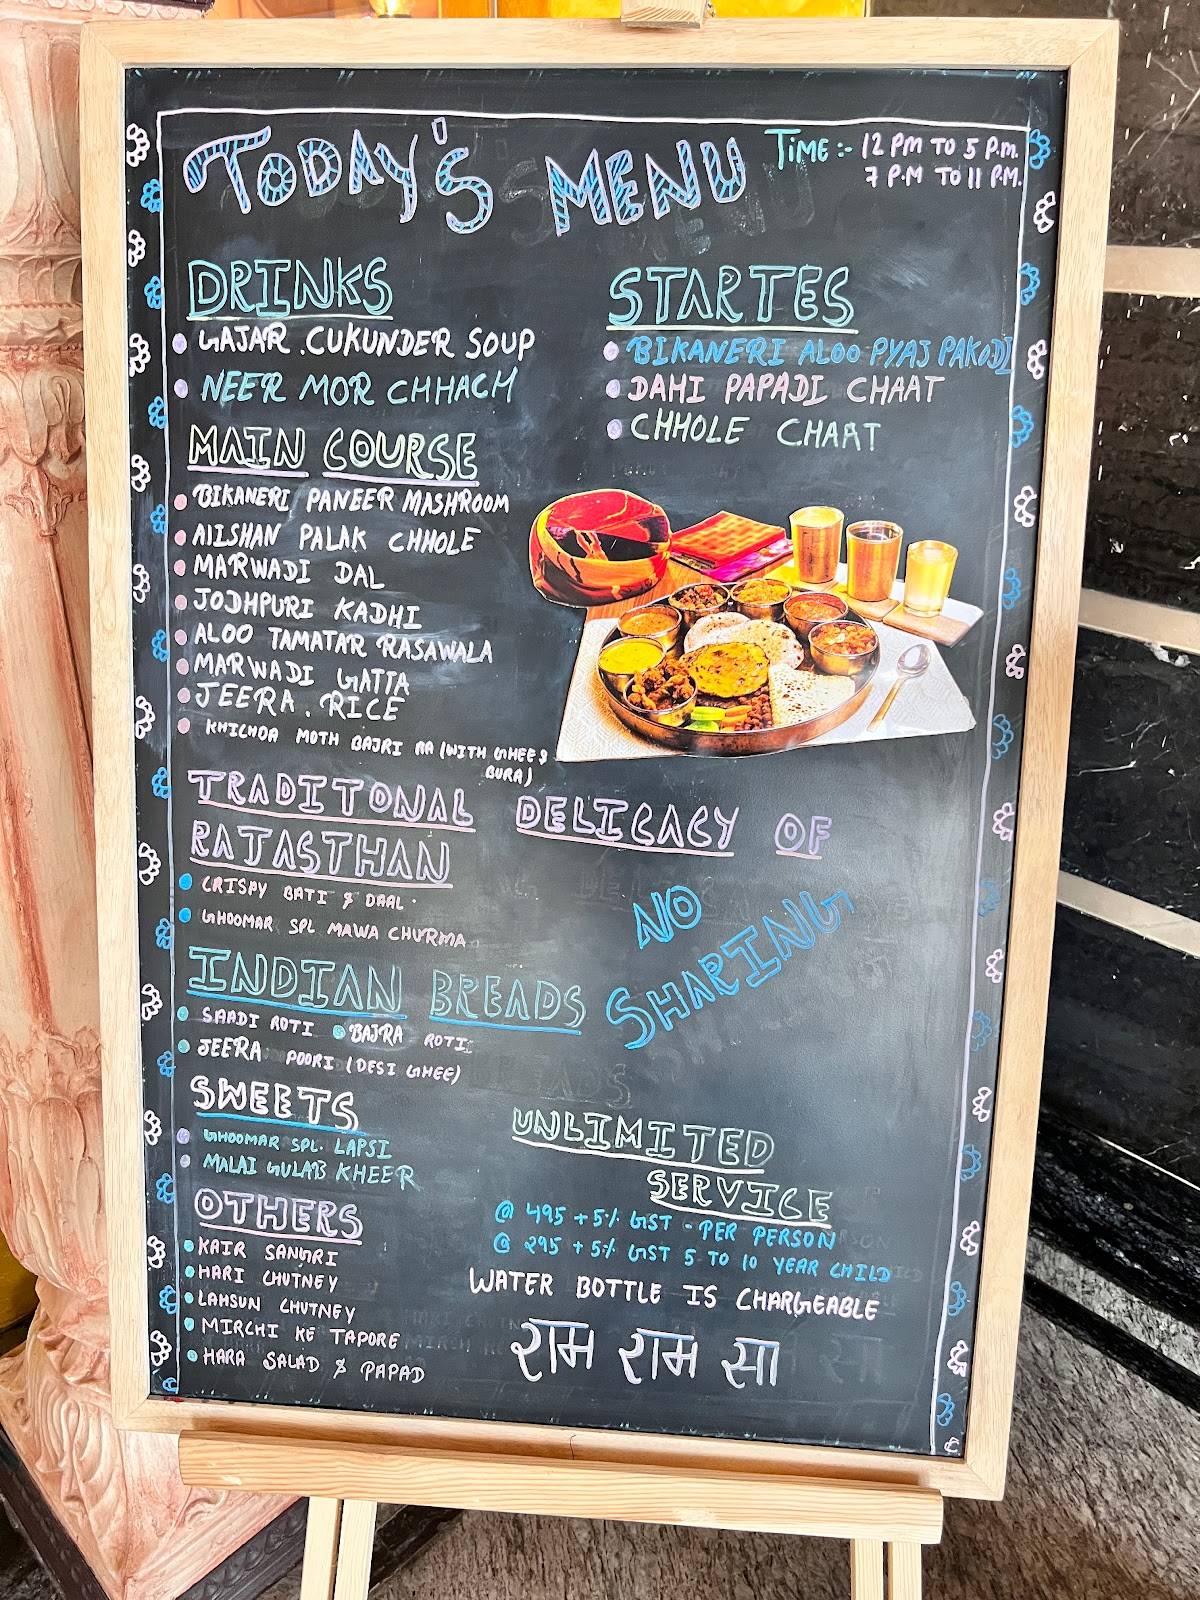 TODAY'S MENU
TIME :- 12 PM TO 5 P.M.
7 P.M TO 11 P.M.
DRINKS
GAJAR . CUKUNDER SOUP
NEER MOR CHHACH
STARTES
BIKANERI ALOO PYAJ PAKODI
DAHI PAPADI CHAAT
CHHOLE CHAAT
MAIN COURSE
BIKANERI PANEER MASHROOM
ALISHAN PALAK CHHOLE
MARWADI DAL
JODHPURI KADHI
ALOO TAMATAR RASAWALA
MARWADI GATTA
JEERA . RICE
KHICHDA MOTH BAJRI RA (WITH GHEE &
BURA)
TRADITONAL DELICACY OF
RAJASTHAN
CRISPY BATI & DAAL
GHOOMAR SPL MAWA CHURMA
NO
SHARING
INDIAN BREADS
SAADI ROTI BAJRA ROTI
JEERA POORI (DESI GHEE)
SWEETS
GHOOMAR SPL. LAPSI
MALAI GULAB KHEER
OTHERS
KAIR SANGRI
HARI CHUTNEY
LAHSUN CHUTNEY
MIRCHI KE TAPORE
HARA SALAD & PAPAD
UNLIMITED
SERVICE
@ 495 + 5% GST - PER PERSON
@ 295 + 5% GST 5 TO 10 YEAR CHILD
WATER BOTTLE IS CHARGEABLE
राम राम सा